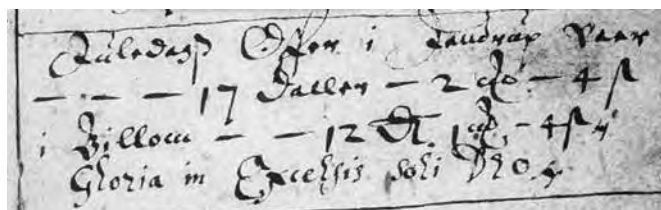 Juledags Offer i Jandrup Vaer
— — — 17 daller — 2 — 4 ß
i Billom — — 12 dl. 1 — 4 ß
Gloria in Excelsis soli Deo